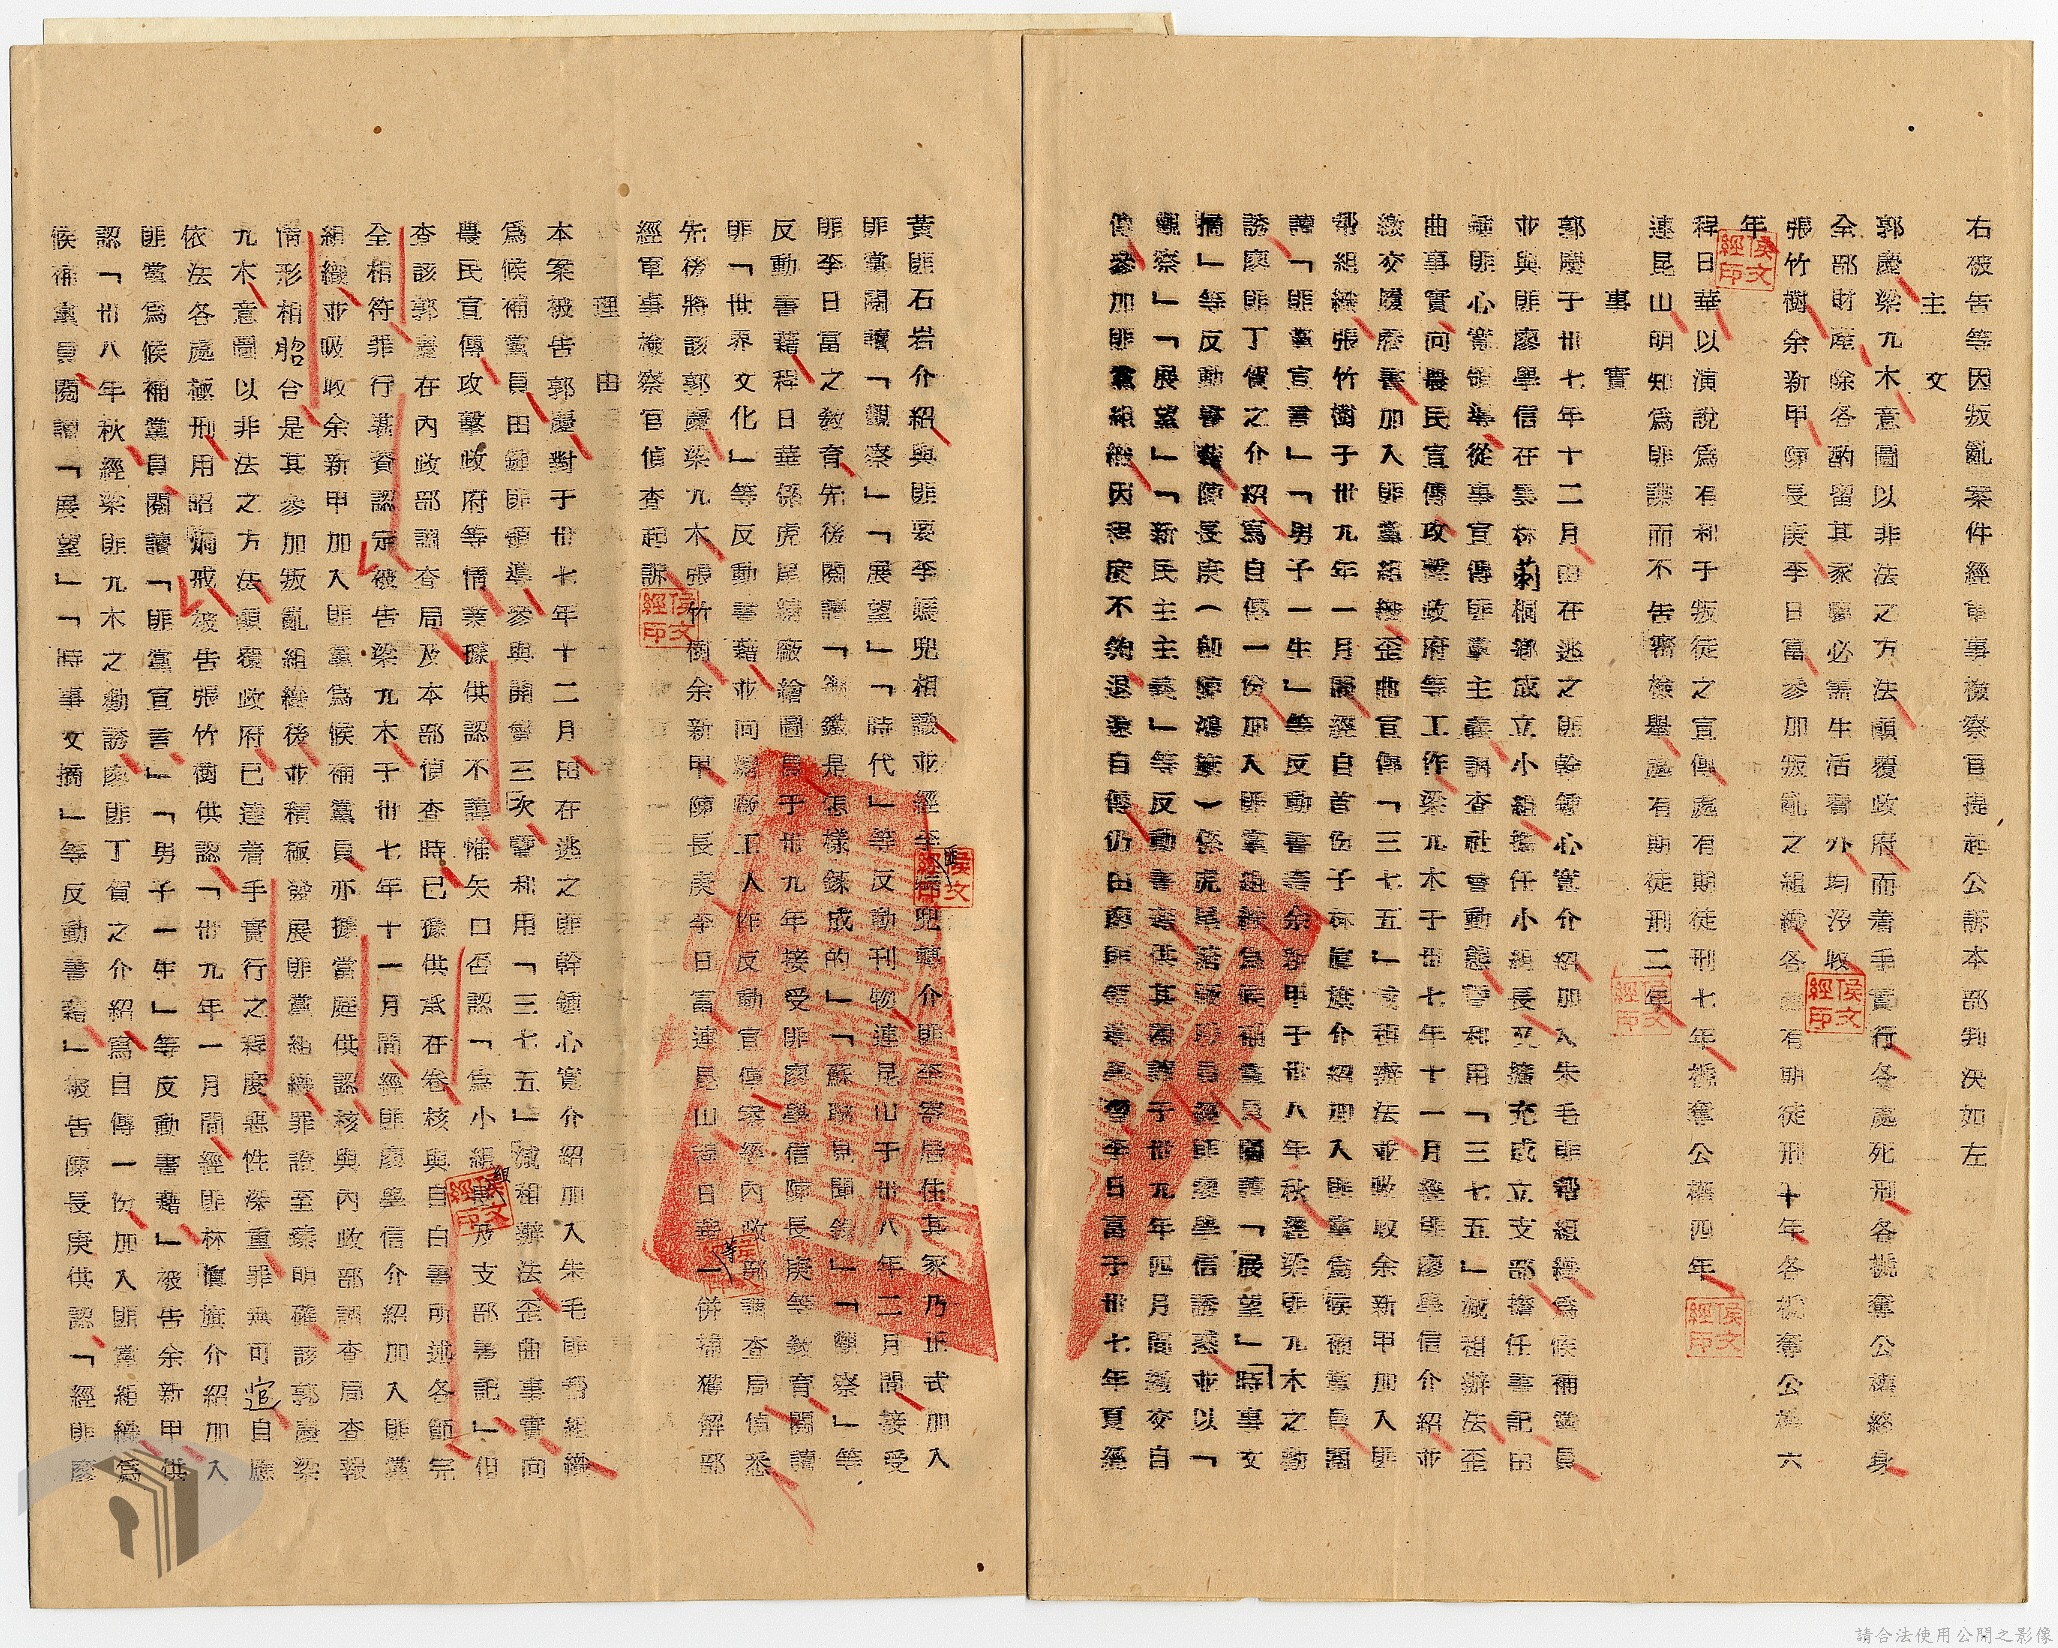 右被告等因叛亂案件經軍事檢察官提起公訴本部判決如左
主文
郭慶梁九木意圖以非法之方法顛覆政府而着手實行各處死刑各褫奪公權終身
全部財產除各酌留其家屬必需生活費外均沒收
張竹樹余新甲陳長庚李日富參加叛亂之組織各處有期徒刑十年各褫奪公權六
年
程日華以演說為有利于叛徒之宣傳處有期徒刑七年褫奪公權四年
連昆山明知為匪諜而不告密檢舉處有期徒刑二年
事實
郭慶于卅七年十二月由在逃之匪幹鍾心寬介紹加入朱毛匪幫組織為候補黨員
並與匪廖學信在雲林莿桐鄉成立小組擔任小組長又擴充成立支部擔任書記由
鍾匪心寬領導從事宣傳匪黨主義調查社會動態暨利用「三七五」減租辦法歪
曲事實向農民宣傳攻擊政府等工作梁九木于卅七年十一月經匪廖學信介紹並
繳交履歷書加入匪黨組織歪曲宣傳「三七五」減租辦法並吸收余新甲加入匪
部組織張竹樹于卅九年一月間經自首份子林眞旗介紹加入匪黨為候補黨員閱
讀「匪黨宣言」「男子一生」等反動書籍余新甲于卅八年秋經梁匪九木之勸
誘廖匪丁貨之介紹寫自傳一份加入匪黨組織為候補黨員閱讀「展望」「時事文
摘」等反動書籍陳長庚（即陳鴻旗）係虎尾糖廠
觀察」「展望」「新民主主義」等反動書籍供其閱讀于卅九年四月間繳交自
傳參加匪黨組織因程度不夠退還自傳仍由廖匪領導李日富于卅七年夏經
黃匪石岩介紹與匪要李媽兜相識並經李媽兜轉介匪李寄居住其家乃正式加入
匪黨閱讀「觀察」「展望」「時代」等反動刊物連昆山于卅八年二月間接受
匪李日富之教育先後閱讀「鋼鐵是怎樣鍊成的」「蘇聯見聞錄」「觀察」等
反動書籍程日華係虎尾糖廠繪圖員于卅九年接受匪廖學信陳長庚等教育閱讀
匪「世界文化」等反動書籍並向糖廠工人作反動宣傳案經內政部調查局偵悉
先後將該郭慶梁九木張竹樹余新甲陳長庚李日富連昆山程日華等一併捕獲解部
經軍事檢察官偵查起訴
理由
本案被告郭慶對于卅七年十二月由在逃之匪幹鍾心寬介紹加入朱毛匪幫組織
為候補黨員由鍾匪領導參與開會三次暨利用「三七五」減租辦法歪曲事實向
農民宣傳攻擊政府等情業據供認不諱惟矢口否認「為小組長及支部書記」但
查該郭慶在內政部調查局及本部偵查時已據供承在卷核與自白書所述各節完
全相符罪行甚資認定被告梁九木于卅七年十一月間經匪廖學信介紹加入匪黨
組織並吸收余新甲加入匪黨為候補黨員亦據當庭供認核與內政部調查局查報
情形相脗合是其參加叛亂組織後並積極發展匪黨組織罪證至臻明確該郭慶梁
九木意圖以非法之方法顛覆政府已達着手實行之程度惡性深重罪無可逭自應
依法各處極刑用昭烱戒被告張竹樹供認「卅九年一月間經匪林眞旗介紹加入
匪黨為候補黨員閱讀「匪黨宣言」「男子一生」等反動書籍」被告余新甲供
認「卅八年秋經梁匪九木之勸誘廖匪丁貨之介紹寫自傳一份加入匪黨組織為
候補黨員閱讀「展望」「時事文摘」等反動書籍」被告陳長庚供認「經匪廖
侯文經印
請合法使用公開之影像